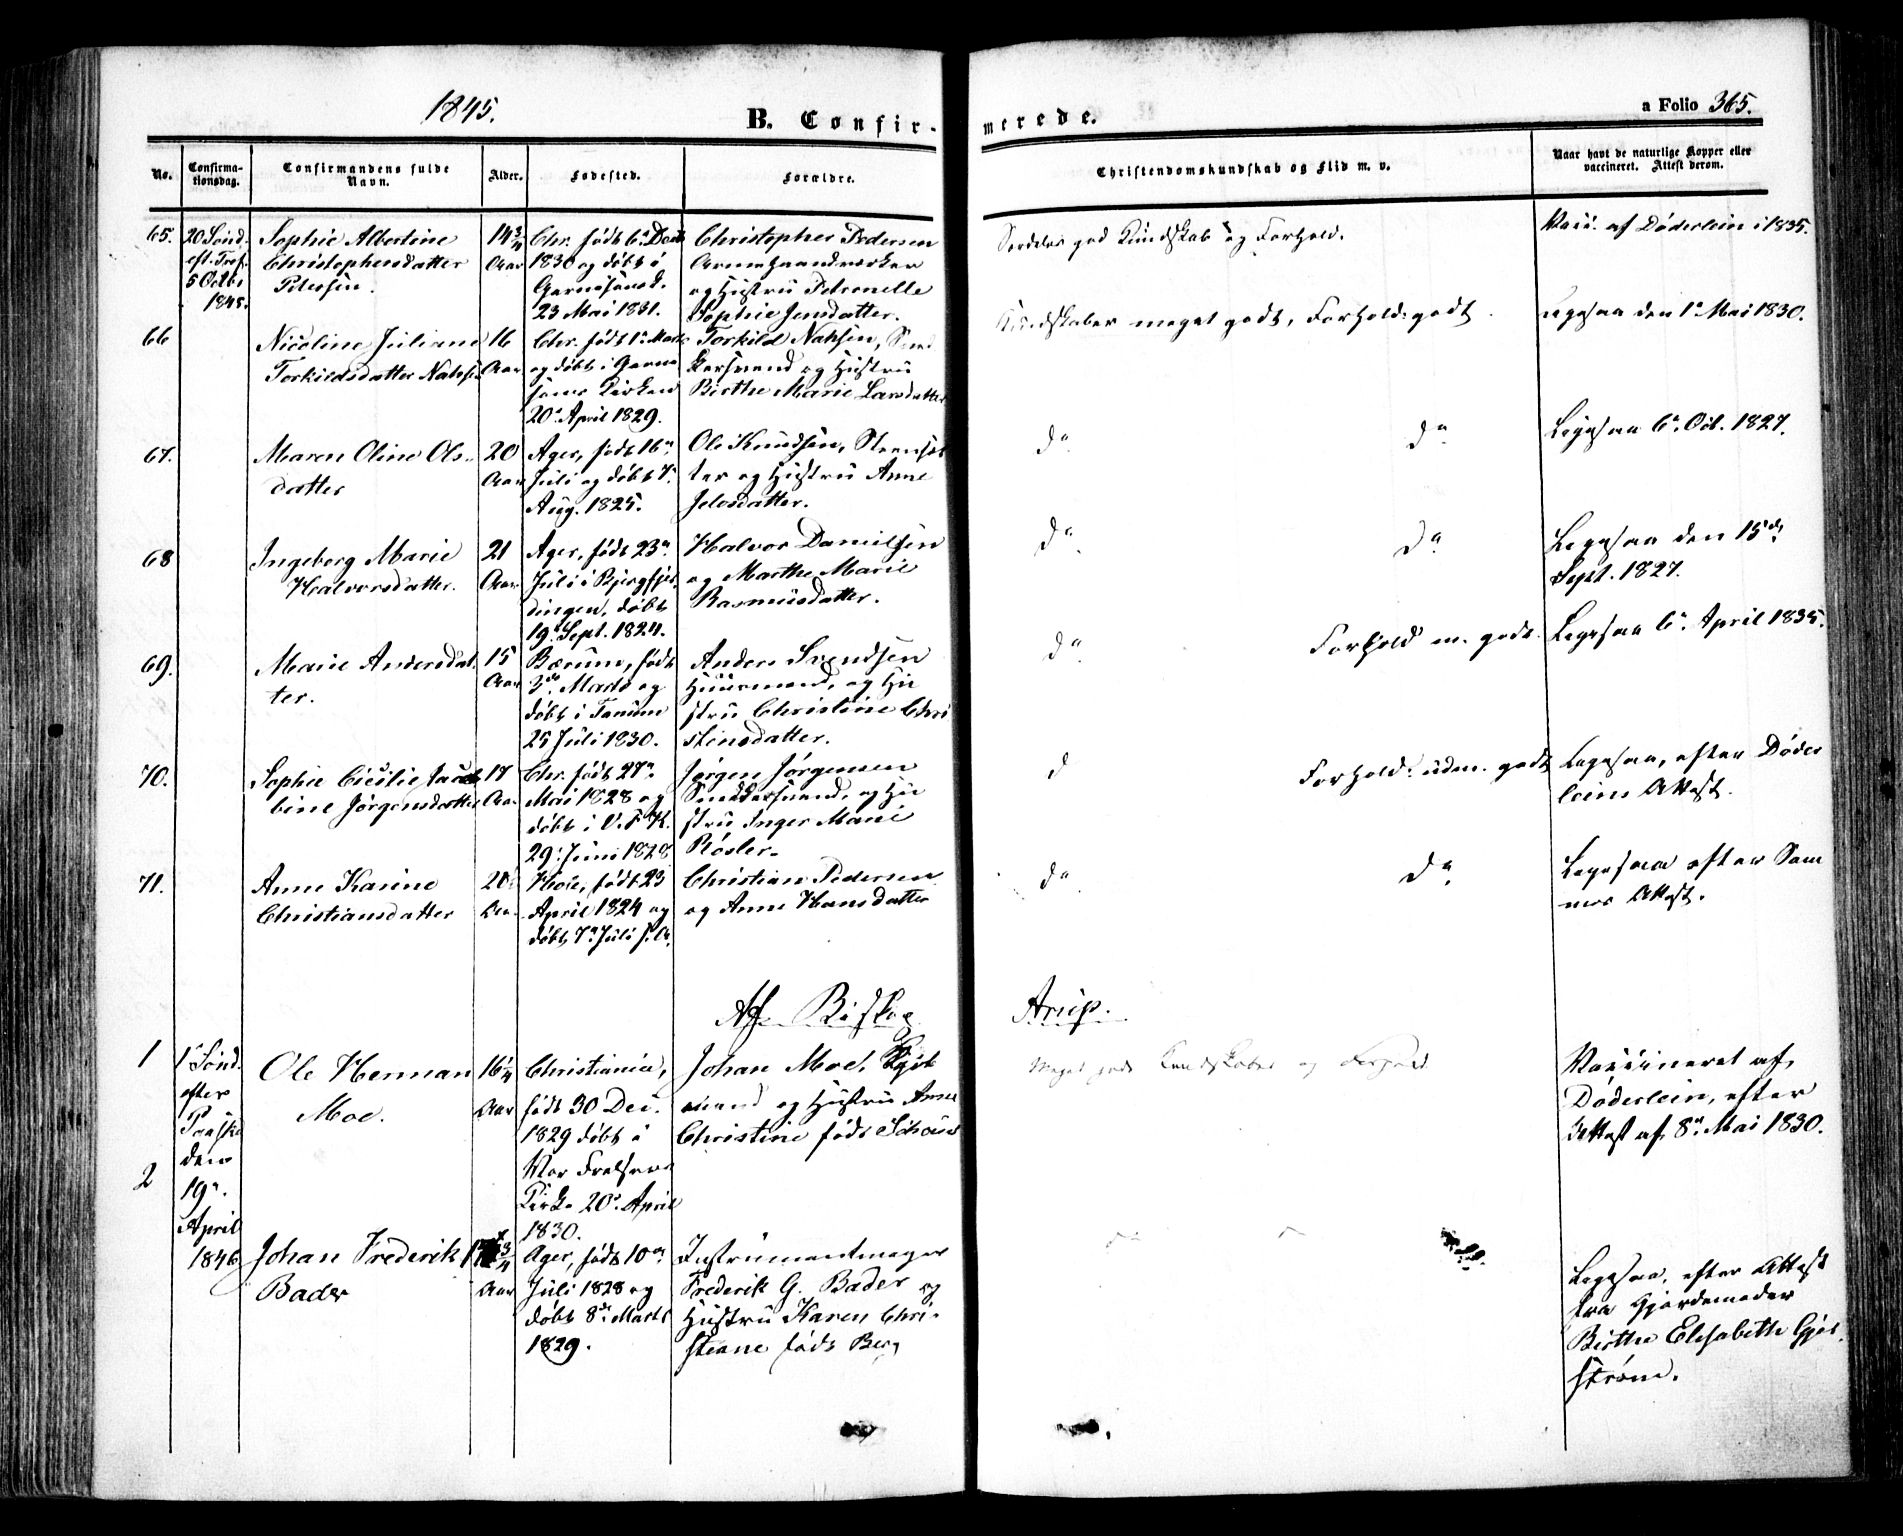 1845.
B. Confir-
merede.
a Folio 365.
No.
Confirma-
tionsdag.
Confirmandens fulde
Navn.
Alder.
Fødested.
Forældre.
Christendomskundskab og Flid m. v.
Naar havt de naturlige Kopper eller
vaccineret. Attest derom.
65.
20 Sønd.
eft. Tref.
5 Octbr
1845.
Sophie Albertine
Christophersdatter
Petersen.
14 3/4
Aar
Chr. født 6te Decb
1830 og døbt i
Garnisonsk.
23 Mai 1831.
Christopher Pedersen
og Hustru Petronelle
Sophie Jensdatter.
Særdeles god Kundskab og Forhold.
Vacc. af Døderlein i 1835.
66
Nicoline Juliane
Torkildsdatter Nahsen
16
Aar
Chr. født 1n Marts
og døbt i Garni
sons Kirken
20n April 1829.
Torkild Nahsen, Sned
kersvend og Hustru
Birthe Marie Larsdatter
Kundskaber meget godt, Forhold godt.
Ligesaa den 1n Mai 1830.
67.
Maren Oline Ols-
datter
20
Aar
Ager, født 16n
Juli og døbt 7n
Aug. 1825.
Ole Knudsen,
ter og Hustru Anne
do
do
Ligesaa 6n Oct. 1827.
68
Ingeborg Marie
Halvorsdatter.
21
Aar
Ager, født 23n
Juli i Bjergfjer
dingen, døbt
19 Sept. 1824.
Halvor Danielsen
og Marthe Marie
Rasmusdatter.
do
do
Ligesaa den 15de
Sept. 1827.
69.
Marie Andersdat
ter.
15
Aar
Bærum, født
3de Marts og
døbt i Tanum
25 Juli 1830.
Anders Svendsen
Huusmand, og Hu
stru Christine Chri
stensdatter.
do
Forhold m. godt.
Ligesaa 6n April 1835.
70.
Sophie Cicilie Jaco
bine Jørgensdatter
17
Aar
Chr. født 27n
Mai 1828 og
døbt i V. F. K.
29 Juni 1828
Jørgen Jørgensen
Snedkersvend, og Hu
stru Inger Marie
Røsler.
d
Forhold: udm. godt
Ligesaa, efter Døder
leins Attest.
71.
Anne Karine
Christiansdatter
20
Aar
Hole, født 23
April 1824 og
døbt 7n Juli s. A.
Christian Pedersen
og Anne Hansdatter
do
do
Ligesaa efter Som
mers Attest.
Af Biskop
Arup.
1
1n Sønd.
efter
Paaske
den
19n
April
1846
Ole Herman
Moe.
16 1/4
Aar
Christiania,
født 30 Dec.
1829 døbt i
Vor Frelsers
Kirke 20n April
1830.
Johan Moe,
mand og Hustru Anne
Christine født Schou
Meget gode Kundskaber og Forhold
Vaccineret af
Døderlein, efter
Attest af 8n Mai 1830.
2
Johan Frederik
Bader
17 3/4
Aar
Ager, født 10n
Juli 1828 og
døbt 8de Marts
1829.
Instrumentmager
Frederik G. Bader og
Hustru Karen Chri-
stiane født Berg
Ligesaa, efter Attest
fra Gjordemoder
Birthe Elisabeth Gjer
strøm.